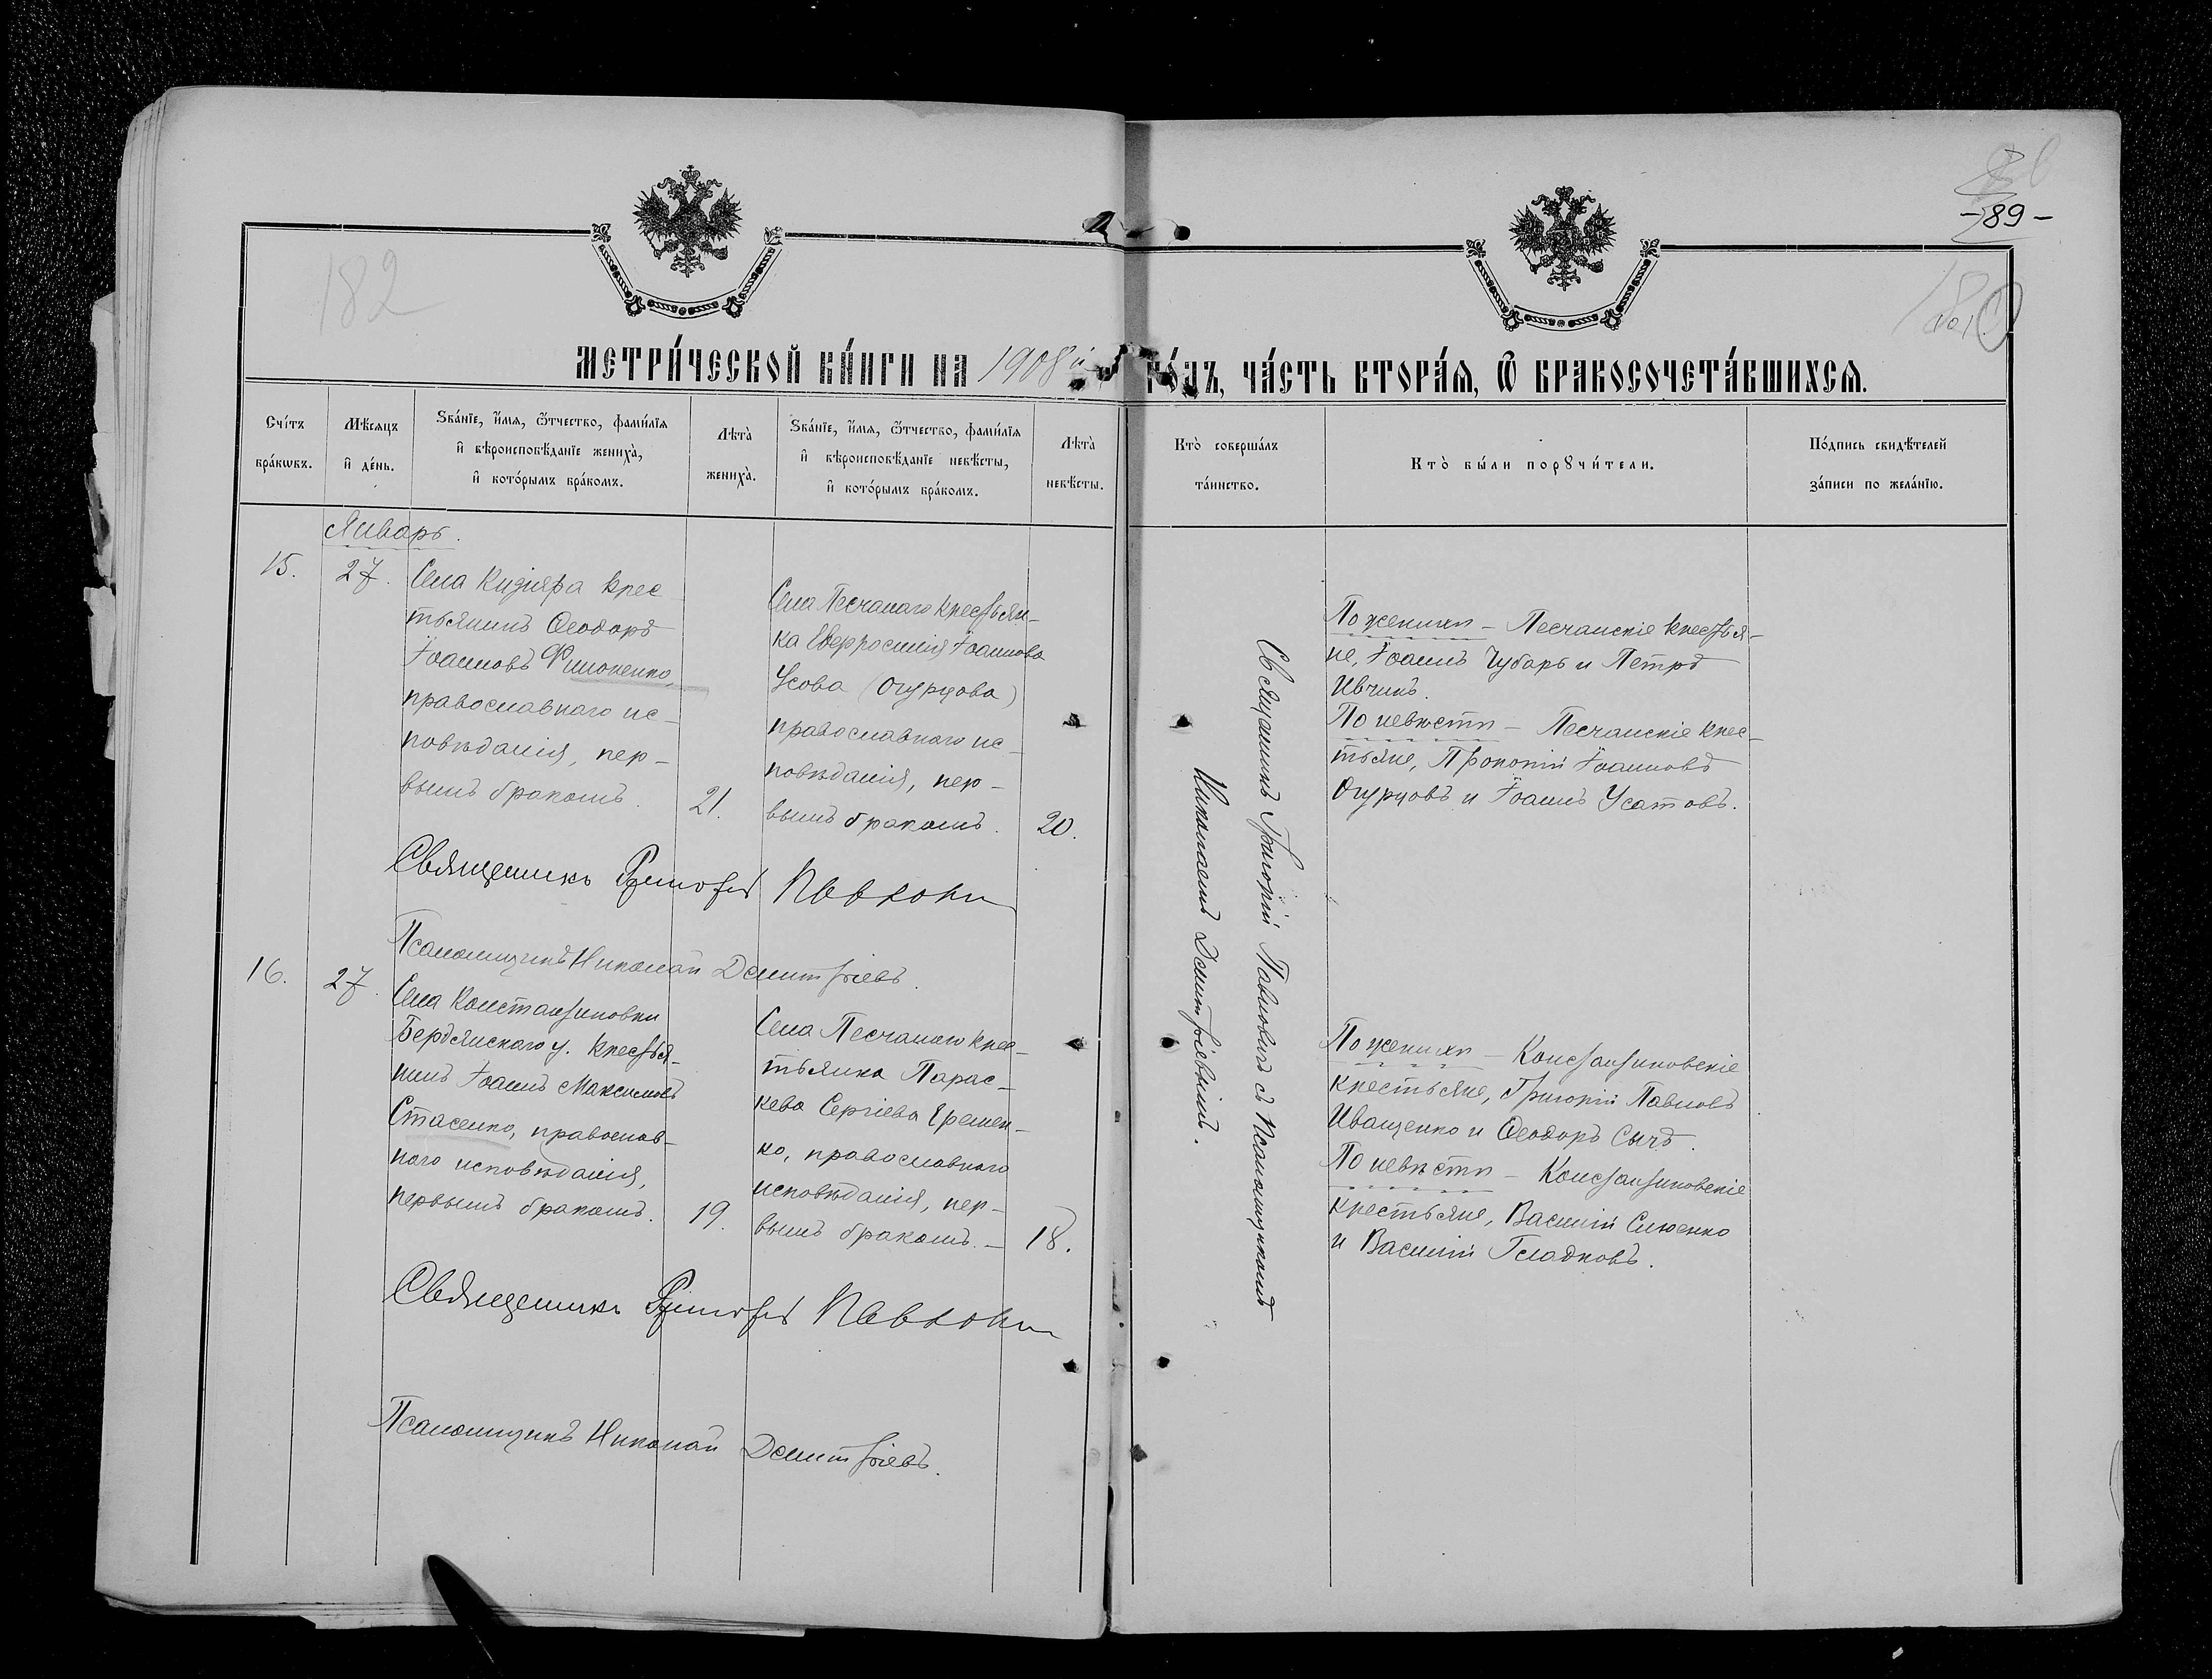 -89-
182
МЕТРИ́ЧЕСКОЙ КН́ИГИ НА 1908й ГО́ДЪ, ЧА́СТЬ ВТОРА́Я, Ѿ БРАКОСОЧЕТА́ВШИХСЯ.
Сче́тъ бра́кѡвъ.
Мѣ́сяцъ и҆ де́нь.
Ѕва́нїе, и҆́мя, ѻ҆́тчество, фами́лїя
и҆ вѣроисповѣ́данїе жениха̀,
и҆ кото́рымъ бра́комъ.
Лѣта̀ жениха̀.
Ѕва́нїе, и҆́мя, ѻ҆́тчество, фами́лїя
и҆ вѣроисповѣ́данїе невѣ́сты,
и҆ кото́рымъ бра́комъ.
Лѣта̀ невѣ́сты.
Кто̀ соверша́лъ та́инство.
Кто̀ бы́ли порꙋчи́тели.
По́дпись свидѣ́телей за́писи по жела́нїю.
Январь.
15.
27.
Села Кизіяра крес
тьянинъ Ѳеодоръ
Іоанновъ Филоненко,
православнаго ис-
повѣданія, пер-
вымъ бракомъ.
21.
Села Песчанаго крестьян-
ка Евфросинія Іоаннова
Усова (Огурцова)
православнаго ис-
повѣданія, пер-
вымъ бракомъ.
20.
Священникъ Григорій Павловичъ съ Псаломщикомъ
Николаемъ Димитріевымъ.
По женихѣ - Песчанскіе крестья-
не, Іоаннъ Чубарь и Петръ
Ивчинъ.
По невѣстѣ - Песчанскіе крес-
тьяне, Прокопій Іоанновъ
Огурцовъ и Іоаннъ Усатовъ.
Священникъ Григорій
Псаломщикъ Николай Димитріевъ.
16.
27.
Села Константиновки
Бердянскаго у. крестья-
нинъ Іоаннъ Максимовъ
Стасенко, православ-
наго исповѣданія,
первымъ бракомъ.
19.
Села Песчанаго крес-
тьянка Парас-
кева Сергіева Еремен-
ко, православнаго
исповѣданія, пер-
вымъ бракомъ. -
18.
По женихѣ - Константиновскіе
крестьяне, Григорій Павловъ
Иващенко и Ѳеодоръ Сычъ.
По невѣстѣ - Константиновскіе
крестьяне, Василій
и Василій Гладковъ.
Священникъ Григорій
Псаломщикъ Николай Димитріевъ.